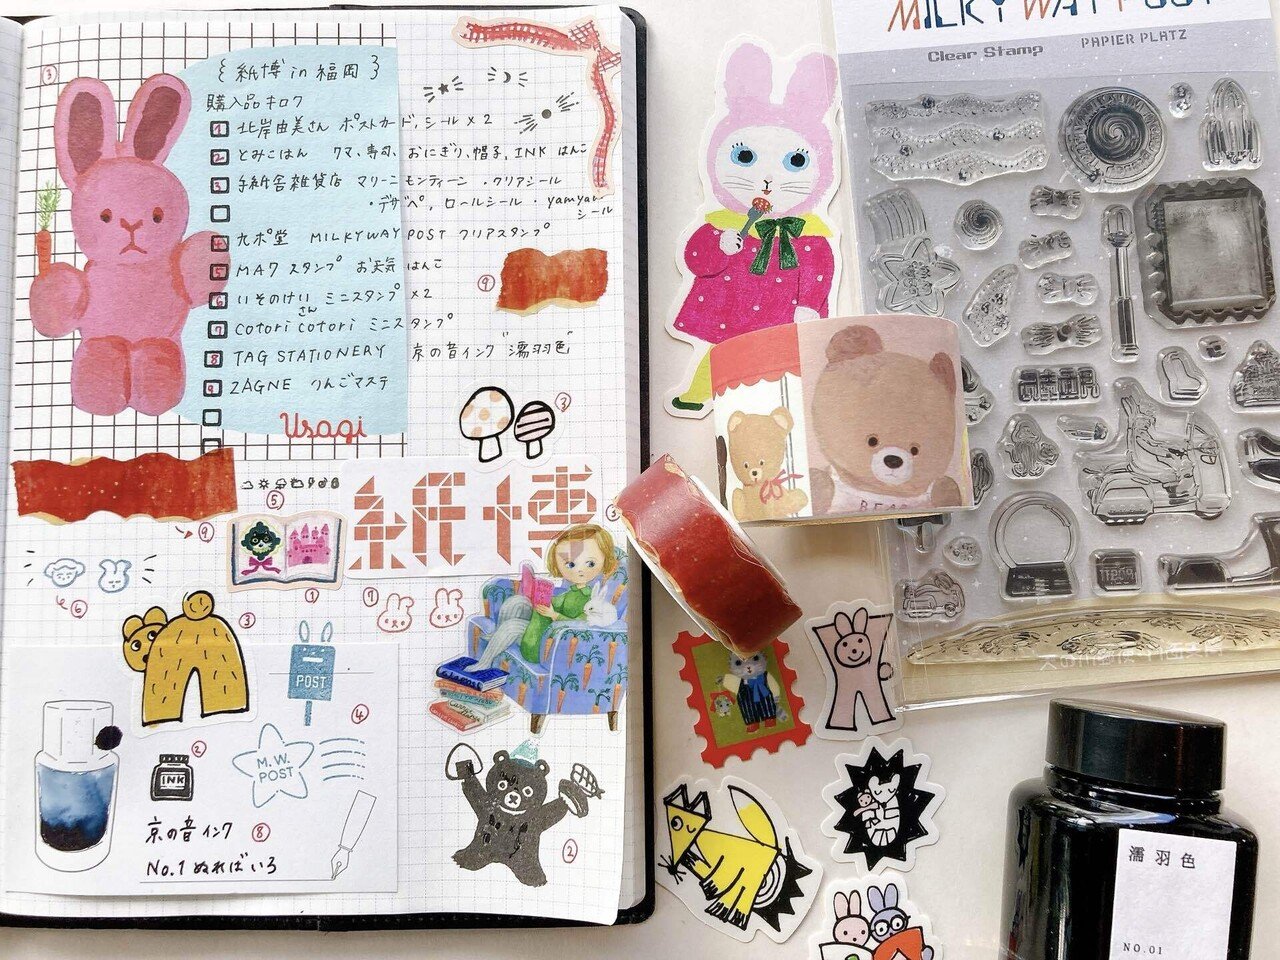 { 紙博 in 福岡 }
購入品キロク
1 北岸由美さん ポストカード, シール×2
2 とみこはん クマ、寿司、おにぎり、帽子, INK はんこ
3 手紙舎雑貨店 マリーニ モンティーニ ・クリアシール
・デザペ, ロールシール ・yamyam
シール
4 九ポ堂 MILKYWAY POST クリアスタンプ
5 MA7 スタンプ お天気 はんこ
6 いそのけいさん ミニスタンプ ×2
7 cotori cotori ミニスタンプ
8 TAG STATIONERY 京の音インク "濡羽色"
9 ZAGNE りんごマステ
Usagi
3
9
3
5
9
紙博
6
1
7
3
POST
4
2
INK
M.W.
POST
京の音インク 8
No.1 ぬればいろ
2
MILKY WAY POST
Clear Stamp PAPIER PLATZ
BEAR
濡羽色
NO.01